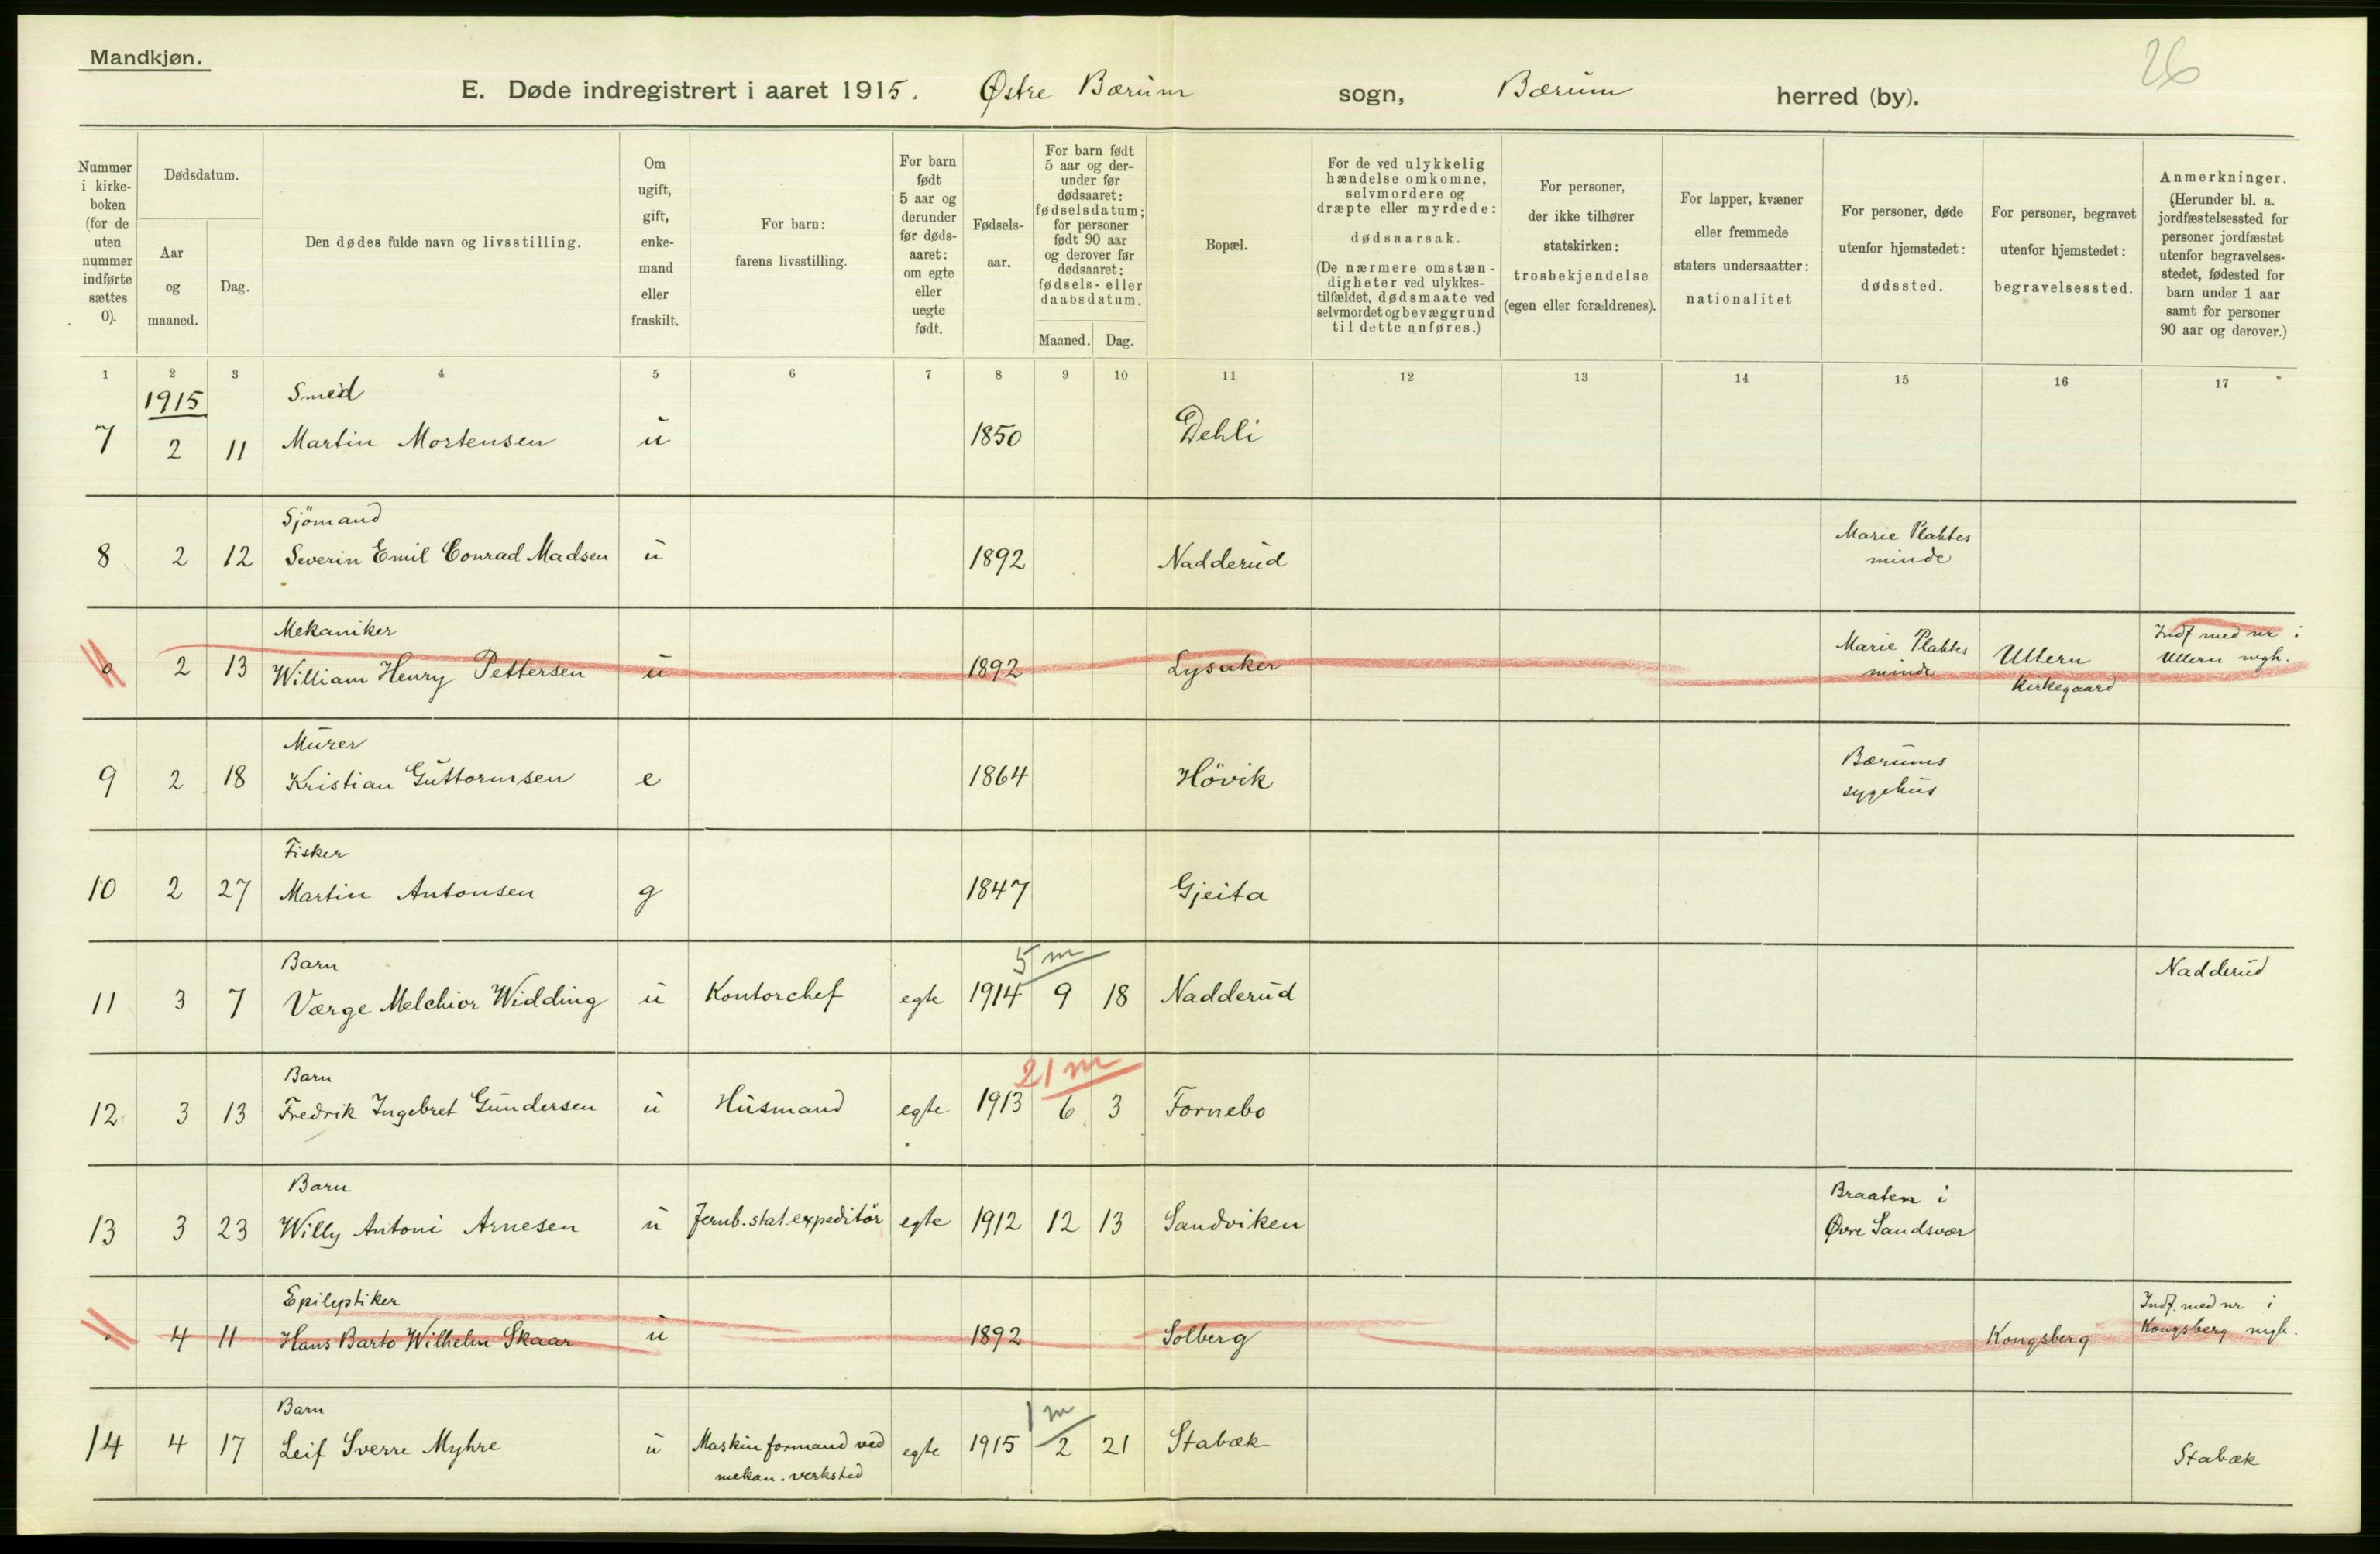 Mandkjøn.
26
E. Døde indregistrert i aaret 1915. Østre Bærum sogn, Bærum herred (by).
Nummer
i kirke-
boken
(for de
uten
nummer
indførte
sættes
0).
Dødsdatum.
Aar
og
maaned.
Dag.
Den dødes fulde navn og livsstilling.
Om
ugift,
gift,
enke-
mand
eller
fraskilt.
For barn:
farens livsstilling.
For barn
født
5 aar og
derunder
før døds-
aaret:
om egte
eller
uegte
født.
Fødsels-
aar.
For barn født
5 aar og der-
under før
dødsaaret:
fødselsdatum;
for personer
født 90 aar
og derover før
dødsaaret:
fødsels- eller
daabsdatum.
Maaned. Dag.
Bopæl.
For de ved ulykkelig
hændelse omkomne,
selvmordere og
dræpte eller myrdede:
dødsaarsak.
(De nærmere omstæn-
digheter ved ulykkes-
tilfældet, dødsmaate ved
selvmordet og bevæggrund
til dette anføres.)
For personer,
der ikke tilhører
statskirken:
trosbekjendelse
(egen eller forældrenes).
For lapper, kvæner
eller fremmede
staters undersaatter:
nationalitet
For personer, døde
utenfor hjemstedet:
dødssted.
For personer, begravet
utenfor hjemstedet:
begravelsessted.
Anmerkninger.
(Herunder bl. a.
jordfæstelsessted for
personer jordfæstet
utenfor begravelses-
stedet, fødested for
barn under 1 aar
samt for personer
90 aar og derover.)
1 2 3 4 5 6 7 8 9 10 11 12 13 14 15 16 17
1915 Smed
7 2 11 Martin Mortensen u 1850 Dehli
Sjömand Marie Plahtes
8 2 12 Severin Emil Conrad Madsen u 1892 Nadderud minde
Mekaniker Marie Plahtes Indf med nr i
0 2 13 William Henry Pettersen u 1892 Lysaker minde Ullern Ullern mgh.
kirkegaard
Murer Bærums
9 2 18 Kristian Guttormsen e 1864 Hövik sygehus
Fisker
10 2 27 Martin Antonsen g 1847 Gjeita
Barn 5 m Nadderud
11 3 7 Værge Melchior Widding u Kontorchef egte 1914 9 18 Nadderud
Barn 21 m
12 3 13 Fredrik Ingebret Gundersen u Husmand egte 1913 6 3 Fornebo
Barn Braaten i
13 3 23 Willy Antoni Arnesen u Jernb. stat. expeditör egte 1912 12 13 Sandviken Øvre Sandsvær
Epileptiker Indf. med nr i
4 11 Hans Barto Wilhelm Skaar u 1892 Solberg Kongsberg Kongsberg mgh.
Barn 1 m
14 4 17 Leif Sverre Myhre u Maskinformand ved egte 1915 2 21 Stabæk Stabæk
mekan. verksted